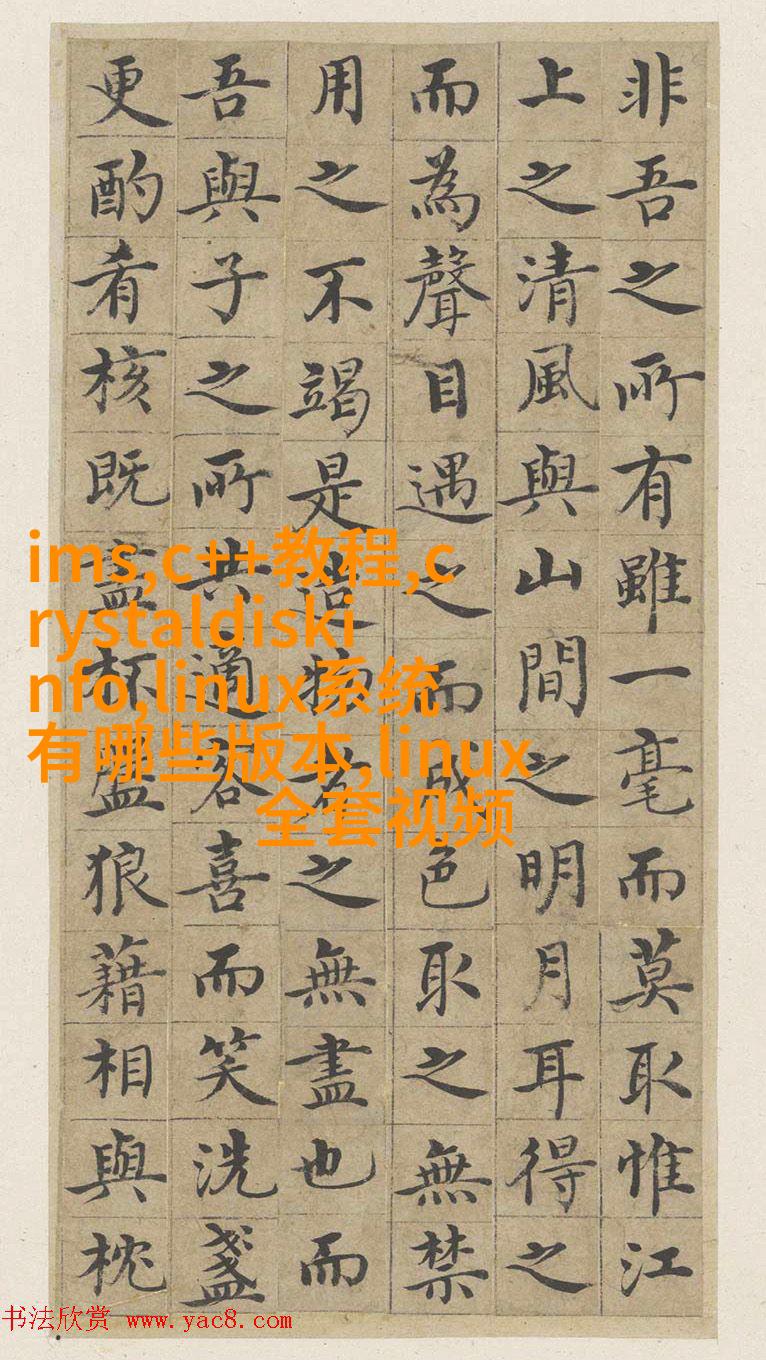 非吾之所有雖一毫而莫取惟江
上之清風與山間之明月耳得之
而為聲目遇之而成色取之無禁
用之不竭是造物者之無盡也而
吾與子之所共適客喜而笑洗盞
更酌肴核既盡杯盤狼藉相與枕
ims,c++教程,c
rystaldiski
nfo,linux系统
有哪些版本,linux
全套视频
书法欣赏 www.yac8.com